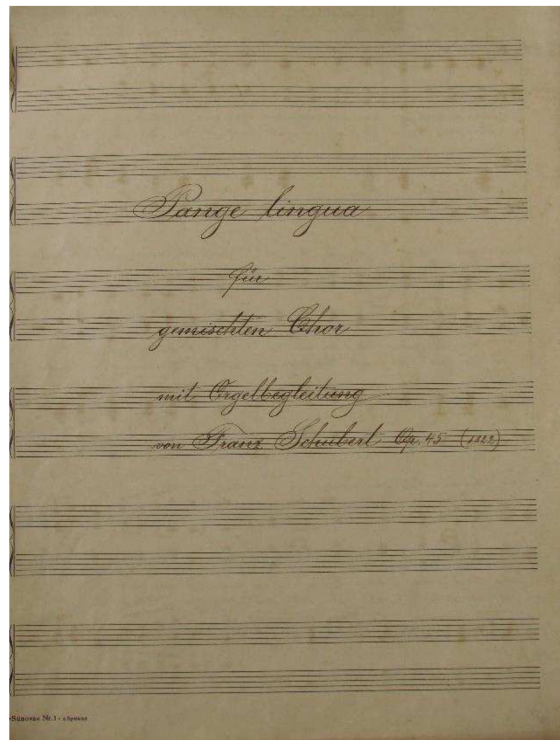 Pange lingua
für
gemischten Chor
mit Orgelbegleitung
von Franz Schubert Op. 45 (1822)
Nr. 1